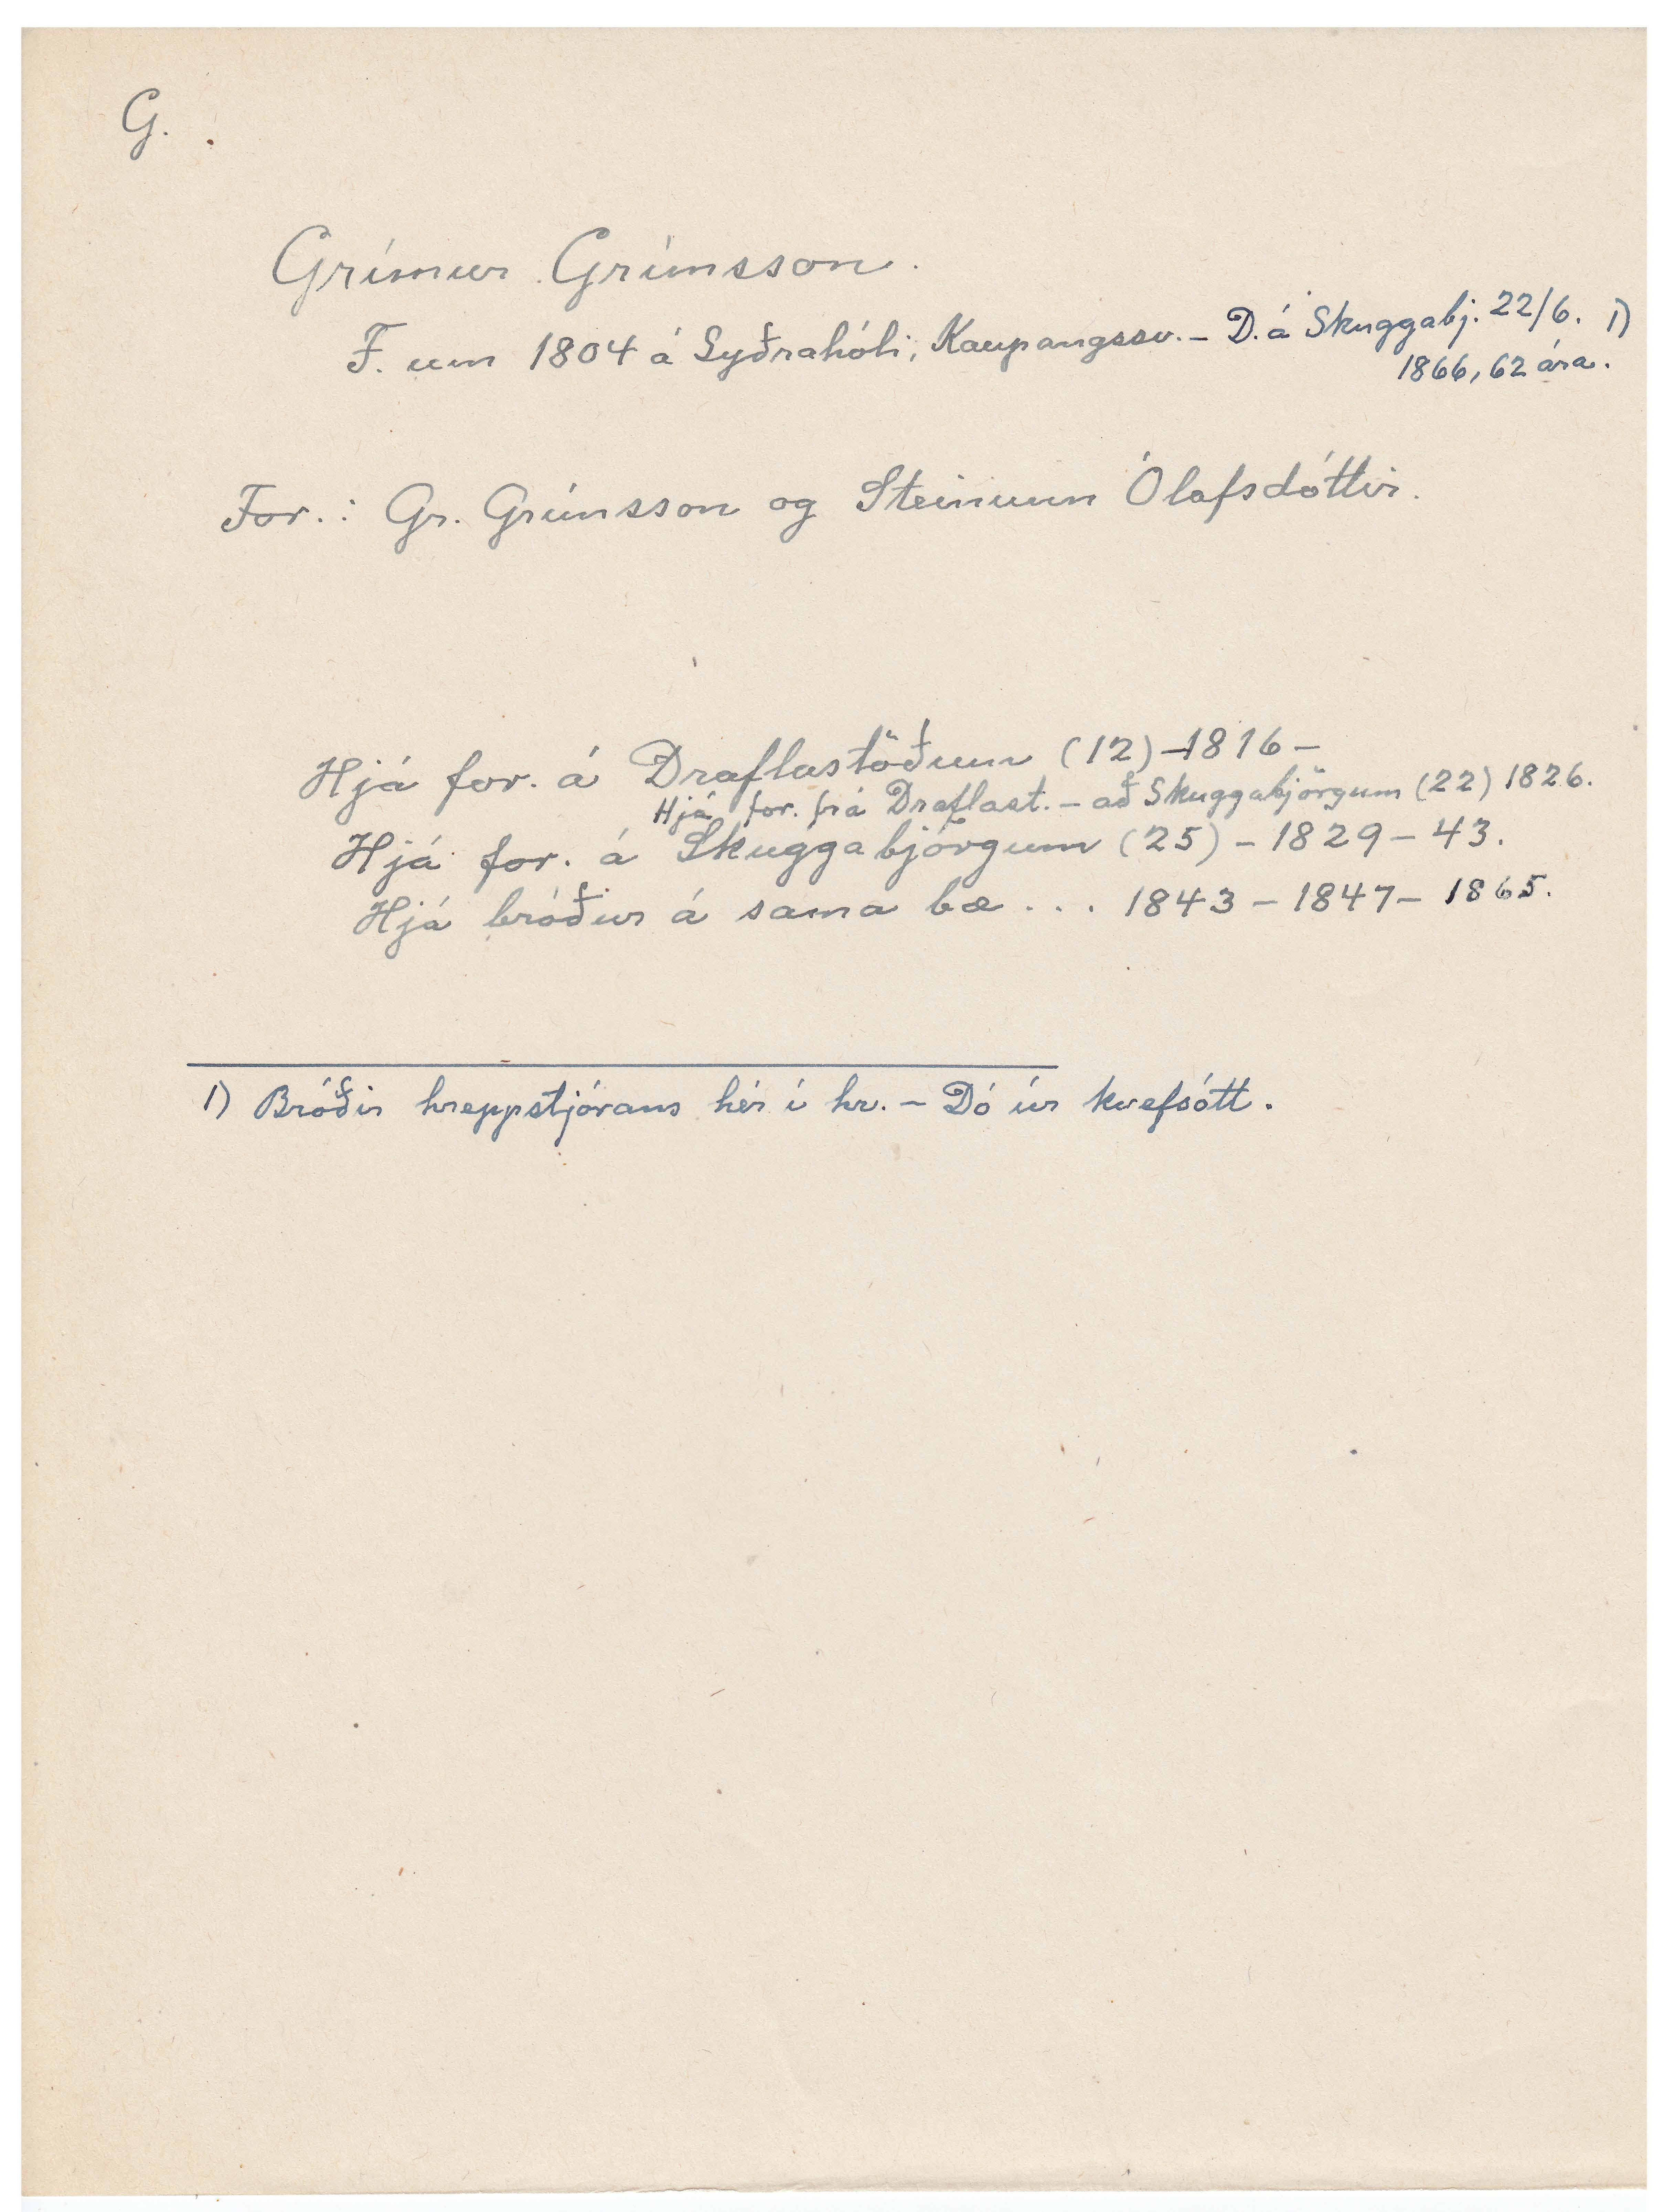 G.
Grímur Grímsson.
F. um 1804 á Syðrahóli, Kaupangssv. - D. á Skuggabj. 22/6. 1)
1866, 62 ára.
For.: Gr. Grímsson og Steinunn Ólafsdóttir.
Hjá for. á Draflastöðum (12) -1816-
Hjá for. frá Draflast. - að Skuggabjörgum (22) 1826.
Hjá for. á Skuggabjörgum (25) - 1829 - 43.
Hjá bróður á sama bæ ... 1843 - 1847 - 1865.
1) Bróðir hreppstjórans hér í hr. - Dó úr kvefsótt.